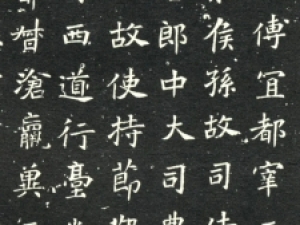 傅宜都宰
侯孫故司徒
郎中大司農
故使持節
西道行臺
督滄瀛冀